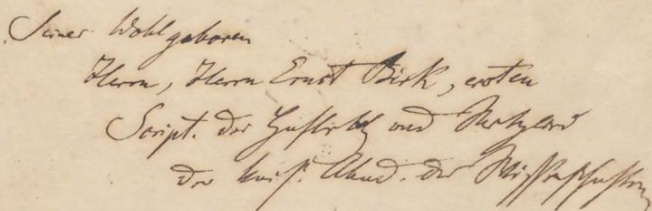 Seiner Wohlgeboren
Herrn, Herrn Ernst Birk, ersten
Script. der Hofbibl. und Mitglied
der kais. Akad. der Wissenschaften